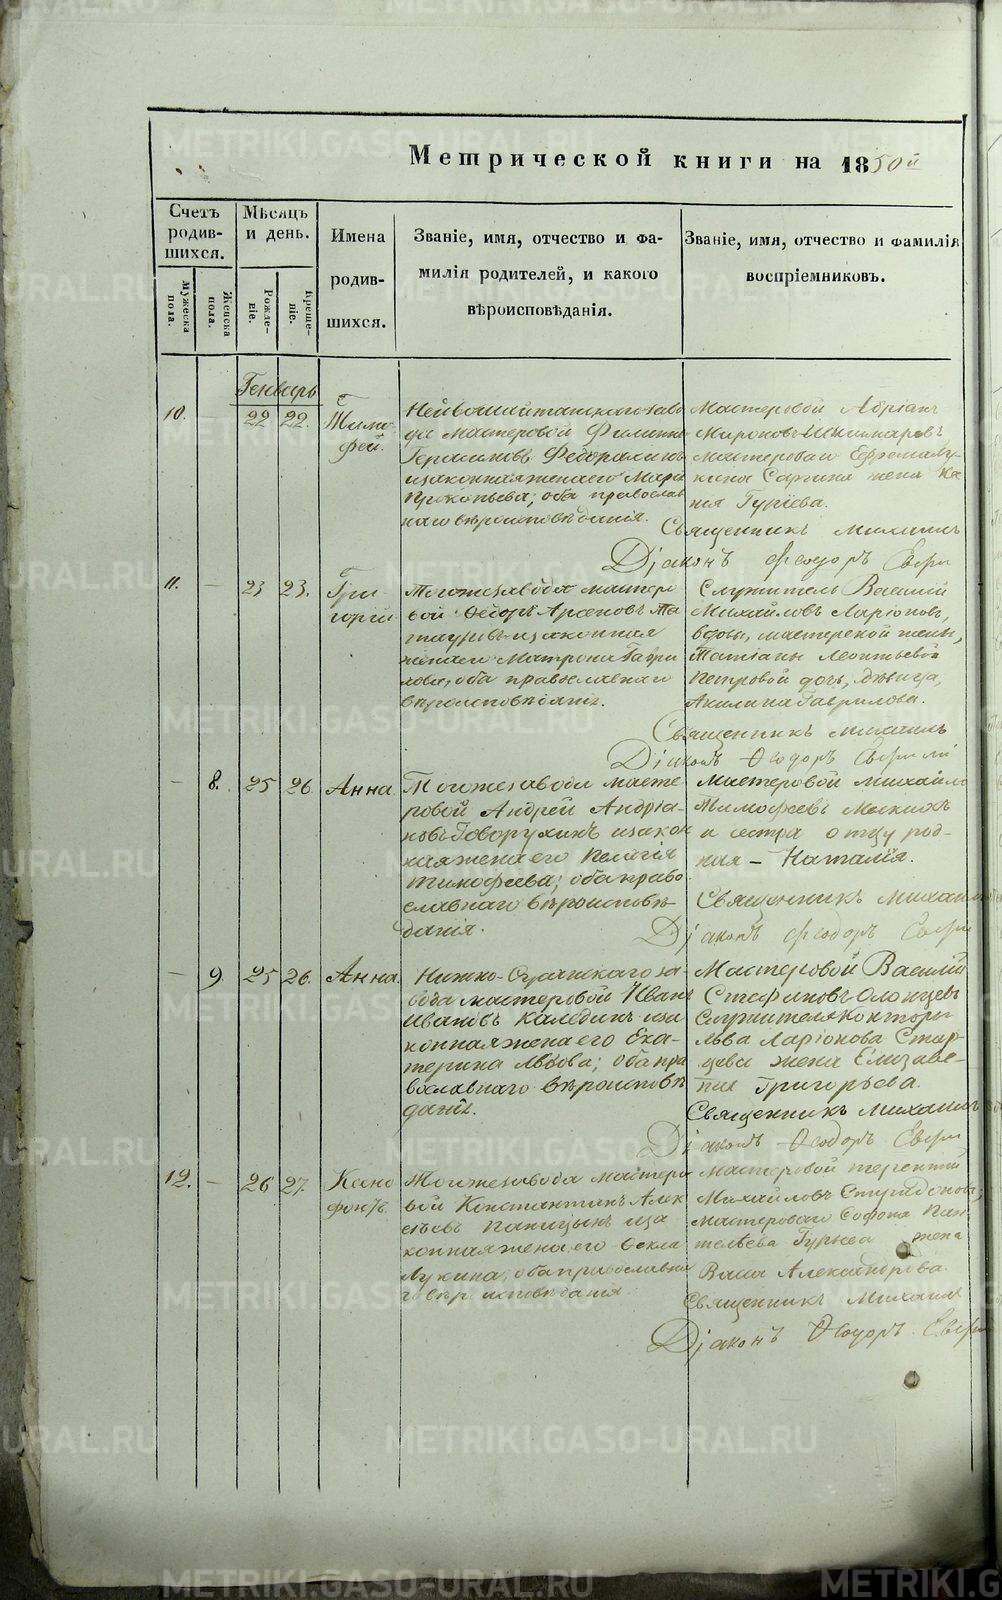 Метрической книги на 1850й
Счетъ родившихся.
Мѣсяцъ и день.
Имена родившихся.
Званіе, имя, отчество и фамилія родителей, и какого вѣроисповѣданія.
Званіе, имя, отчество и фамилія воспріемниковъ.
Мужеска пола.
Женска пола.
Рожденіе.
Крещеніе.
Генварь
10. – 22 22. Тимо
фей.
да мастеровой
Герасимовъ
законная жена его
Прокопьева; оба православ
наго вѣроисповѣданія.
Мастеровой Абріанъ
Мироновъ
мастероваго
жена
Гуріева.
Священникъ Михаилъ
Діаконъ Феодоръ
11. – 23 23. Гри
горій
Тогоже завода мастеро
вой Федоръ
законная
жена его Матрона Гаври
лова, оба православнаго
вѣроисповѣданія.
Служитель Василій
Михайловъ Ларіоновъ,
вдовы, мастерской жены,
Татіаны Леонтьевой
Петровой дочь, дѣвица,
Акилина Гаврилова.
Священникъ Михаилъ
Діаконъ Ѳеодоръ
– 8. 25 26 Анна.
Тогоже завода масте
ровой Андрей Андріа-
новъ Говорухинъ закон
ная жена его Пелагія
Тимофеева; оба право
славнаго вѣроисповѣ-
данія.
Мастеровой Михайло
Тимофеевъ
и сестра отцу род-
ная – Наталія.
Священникъ Михаилъ
Діаконъ Феодоръ
– 9 25 26. Анна.
за-
вода мастеровой Иванъ
Ивановъ Калединъ за
конная жена его Ека-
терина Львова; оба пра
вославнаго вѣроисповѣ
данія.
Мастеровой Василій
Стефановъ Олонцевъ
Служителя Конторы
Льва Ларіонова Стар-
цева жена Елизаве-
та Григорьева.
Священникъ Михаилъ
Діаконъ Ѳеодоръ
12. – 26 27. Ксено
фонтъ.
Тогоже завода мастеро
вой Константинъ Алек
сѣевъ за
конная жена его Фекла
Лукина, оба православна
го вѣроисповѣданія
Мастеровой Терентій
Михайловъ Спиридоновъ,
мастероваго Софона Пан
телѣева Гурьева жена
Васса Александрова.
Священникъ Михаилъ
Діаконъ Ѳеодоръ
METRIKI.GASO-URAL.RU